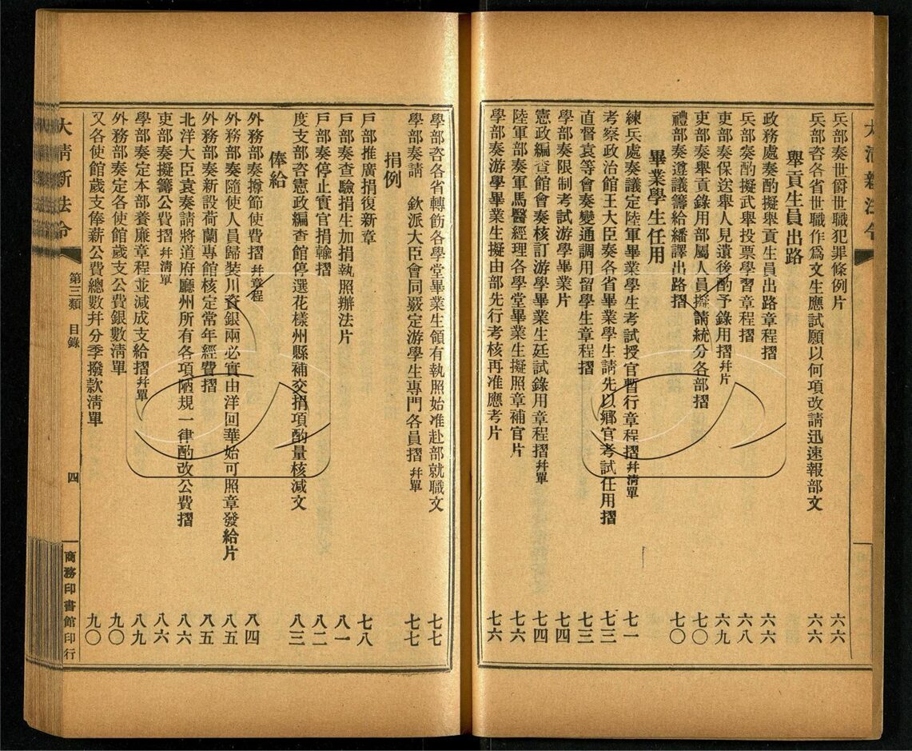 兵部奏世爵世職犯罪條例片 六六
兵部咨各省世職作爲文生應試願以何項改請迅速報部文 六六
舉貢生員出路
政務處奏酌擬舉貢生員出路章程摺 六六
兵部奏酌擬武舉投票學習章程摺 六八
吏部奏保送舉人見遺後酌予錄用摺幷片 六九
吏部奏舉貢錄用部屬人員擬請統分各部摺 七〇
禮部奏遵議籌給繙譯出路摺 七〇
畢業學生任用
練兵處奏議定陸軍畢業學生考試授官暫行章程摺幷淸單 七一
考察政治館王大臣奏各省畢業學生請先以鄉官考試任用摺 七三
直督袁等會奏變通調用留學生章程摺 七三
學部奏限制考試游學畢業片 七四
憲政編查館會奏核訂游學畢業生廷試錄用章程摺幷單 七四
陸軍部奏軍馬醫經理各學堂畢業生擬照章補官片 七六
學部奏游學畢業生擬由部先行考核再准應考片 七六
學部咨各省轉飭各學堂畢業生領有執照始准赴部就職文 七七
學部奏請 欽派大臣會同覈定游學生專門各員摺幷單 七七
捐例
戶部推廣捐復新章 七八
戶部奏查驗捐生加捐執照辦法片 八一
戶部奏停止實官捐輸摺 八二
度支部咨憲政編查館停選花樣州縣補交捐項酌量核減文 八三
俸給
外務部奏撙節使費摺幷章程 八四
外務部奏隨使人員歸裝川資銀兩必實由洋回華始可照章發給片 八五
外務部奏新設荷蘭專館核定常年經費摺 八五
北洋大臣袁奏請將道府廳州所有各項陋規一律酌改公費摺 八六
吏部奏擬籌公費摺幷淸單 八六
學部奏定本部養廉章程並減成支給摺幷單 八九
外務部奏定各使館歲支公費銀數淸單 九〇
又各使館歲支俸薪公費總數幷分季撥款淸單 九〇
大淸新法令
第三類 目錄
四
商務印書館印行